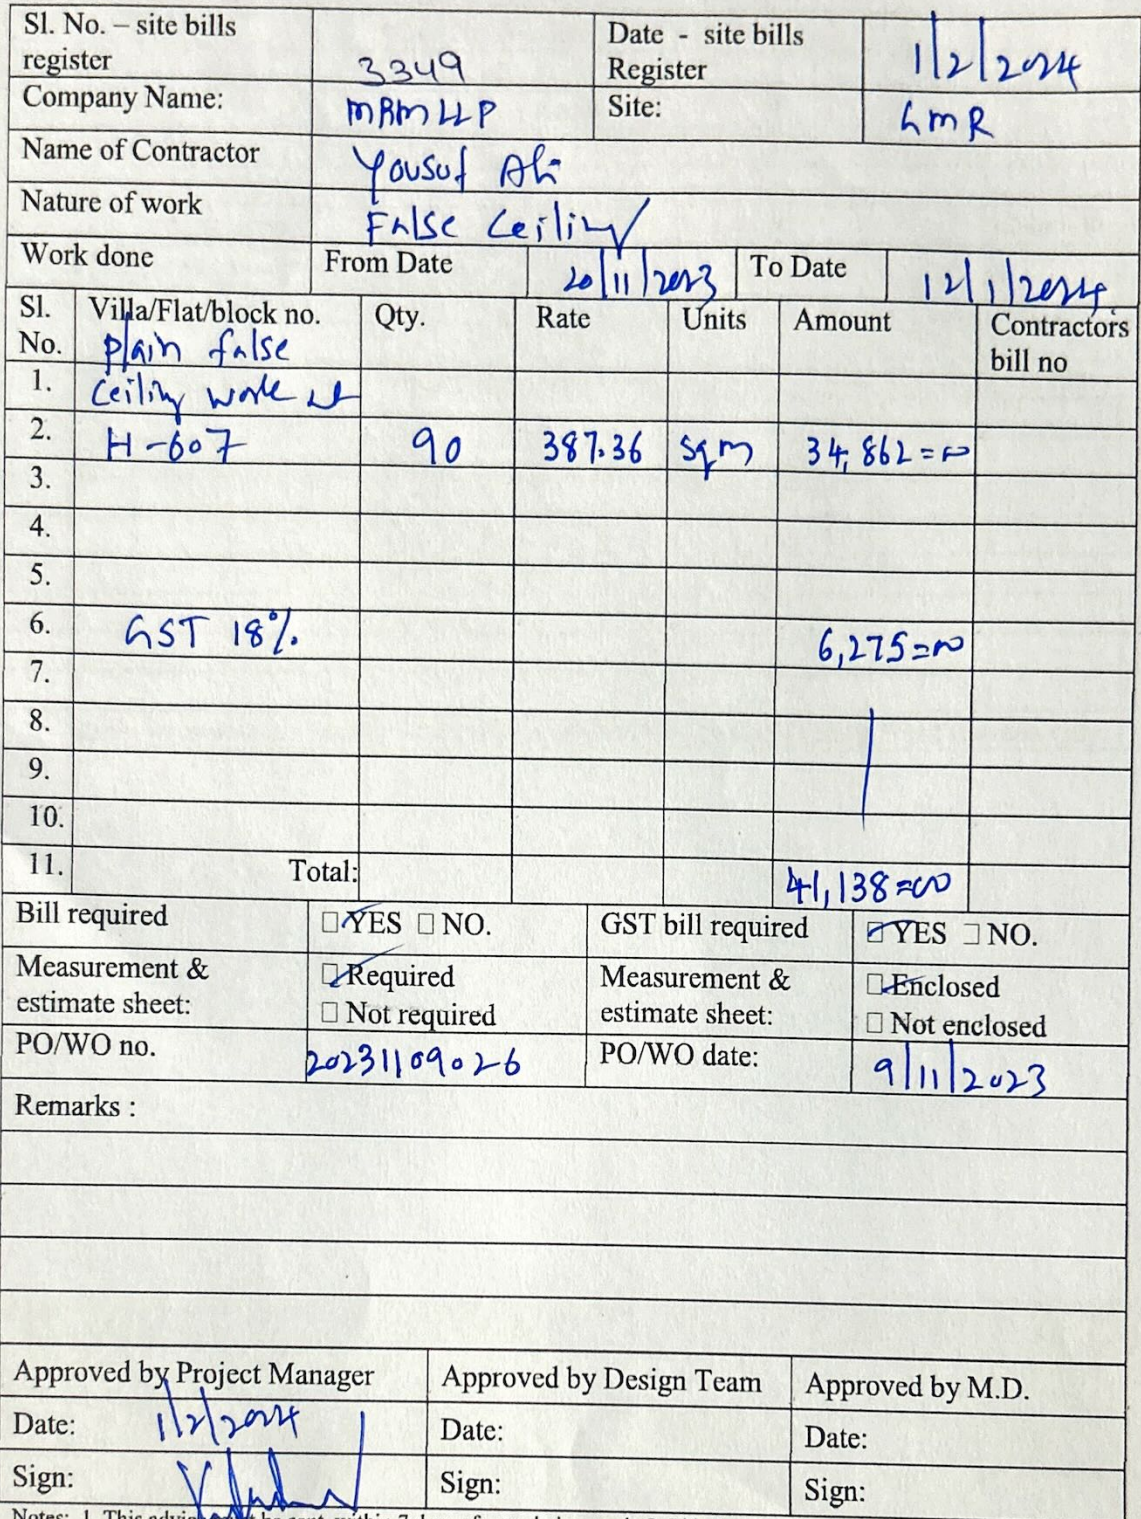 Sl. No. – site bills register 3349 Date - site bills Register 1/2/2024
Company Name: MRM LLP Site: GMR
Name of Contractor Yousuf Ali
Nature of work False Ceiling
Work done From Date 20/11/2023 To Date 12/1/2024
Sl. No. Villa/Flat/block no. Qty. Rate Units Amount Contractors bill no
plain false
1. Ceiling work at
2. H-607 90 387.36 sqm 34,862=00
3.
4.
5.
6. GST 18% 6,275=00
7.
8.
9.
10.
11. Total: 41,138=00
Bill required □ YES □ NO. GST bill required □ YES □ NO.
Measurement & estimate sheet: □ Required □ Not required Measurement & estimate sheet: □ Enclosed □ Not enclosed
PO/WO no. 20231109026 PO/WO date: 9/11/2023
Remarks :
Approved by Project Manager Approved by Design Team Approved by M.D.
Date: 1/2/2024 Date: Date:
Sign: Sign: Sign:
Notes: 1. This